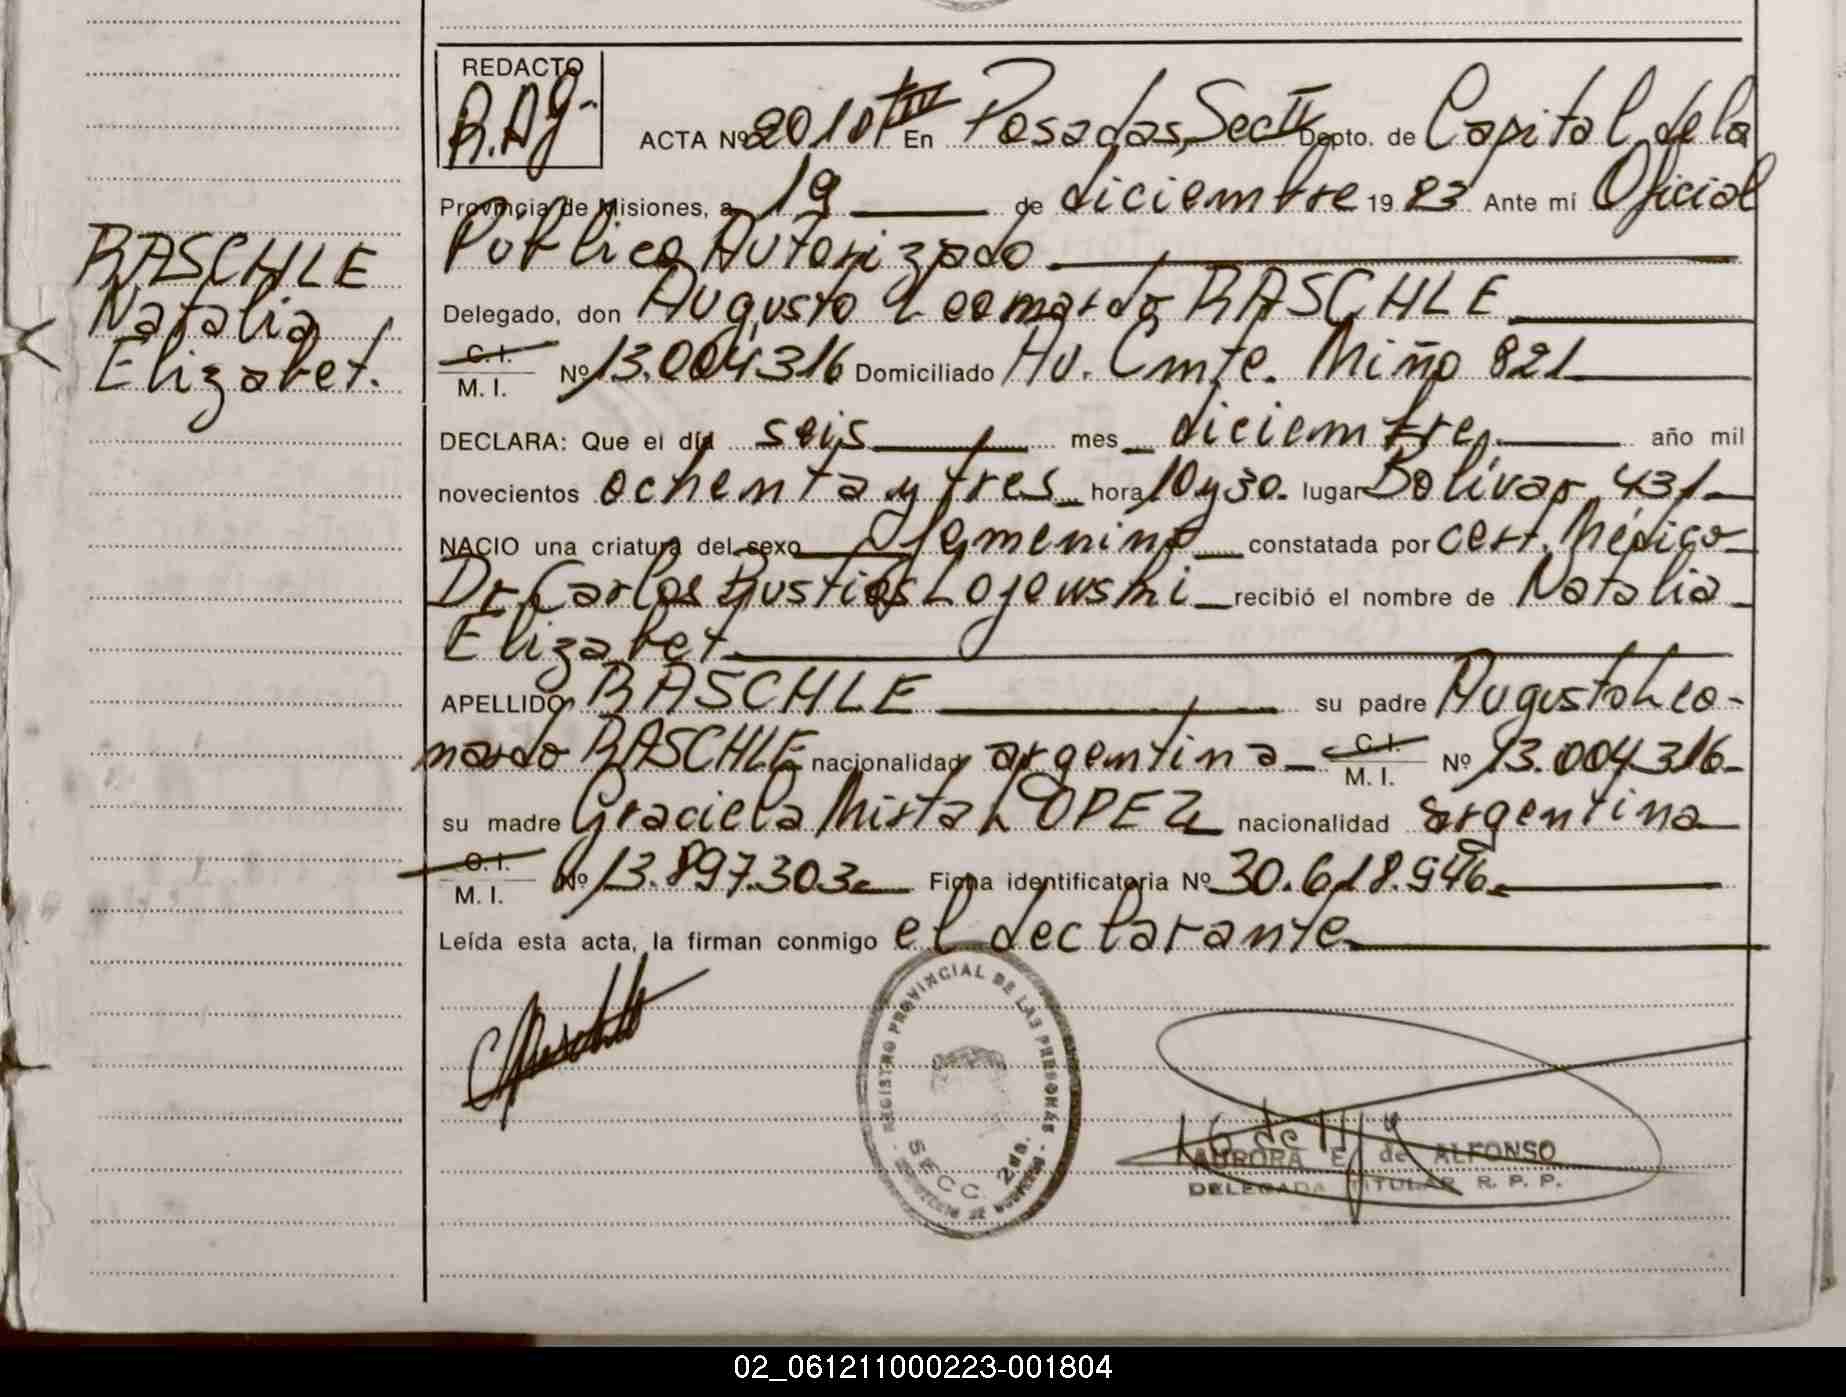 REDACTO
R.A.G.
ACTA Nº 2010 TIV En Posadas, Sec II Depto. de Capital de la
Provincia de Misiones, a 19 de diciembre 1983 Ante mí Oficial
Público Autorizado
Delegado, don Augusto Leonardo RASCHLE
C.I.
M. I. Nº 13.004.316 Domiciliado Av. Cmte. Miño 821
DECLARA: Que el día seis mes diciembre año mil
novecientos ochenta y tres hora 10 y 30. lugar Bolívar 431
NACIO una criatura del sexo femenino constatada por cert. Médico
Dr. Carlos Lojewski recibió el nombre de Natalia
Elizabet
APELLIDO RASCHLE su padre Augusto Leo-
nardo RASCHLE nacionalidad argentina C.I.
M. I. Nº 13.004.316
su madre Graciela Mirta LOPEZ nacionalidad argentina
C.I.
M. I. Nº 13.897.303 Ficha identificatoria Nº 30.618.946
Leída esta acta, la firman conmigo el declarante
RASCHLE
Natalia
Elizabet.
REGISTRO PROVINCIAL DE LAS PERSONAS
SECC. 2da.
AURORA E. de ALFONSO
DELEGADA TITULAR R. P. P.
02_061211000223-001804